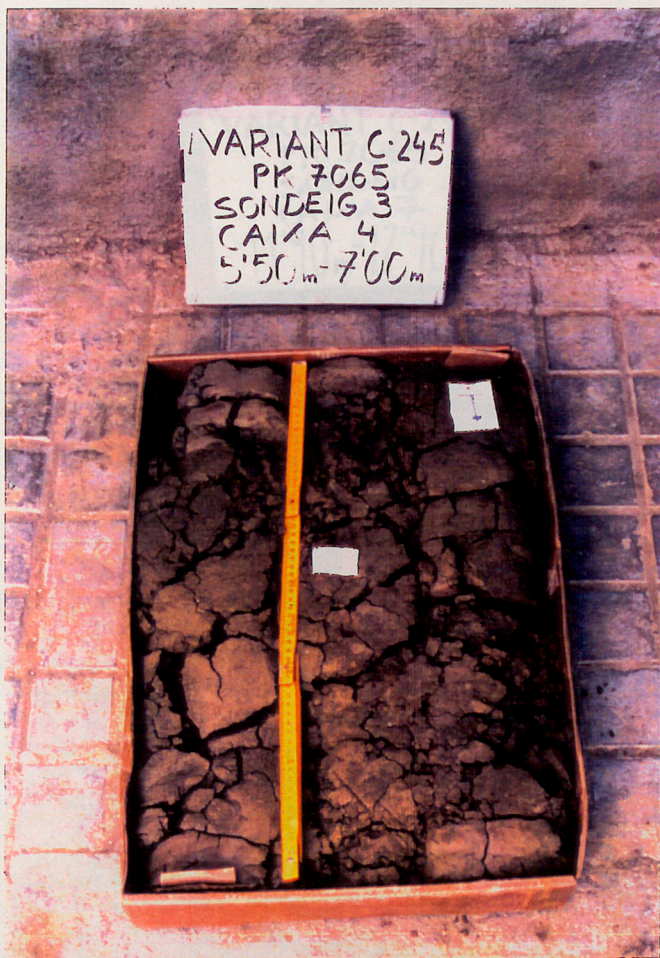 VARIANT C-245
PK 7065
SONDEIG 3
CAIXA 4
5'50m-7'00m